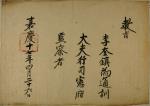 教旨
李奎鎭爲通訓
大夫行司憲府
監察者
嘉慶十七年四月二十六日